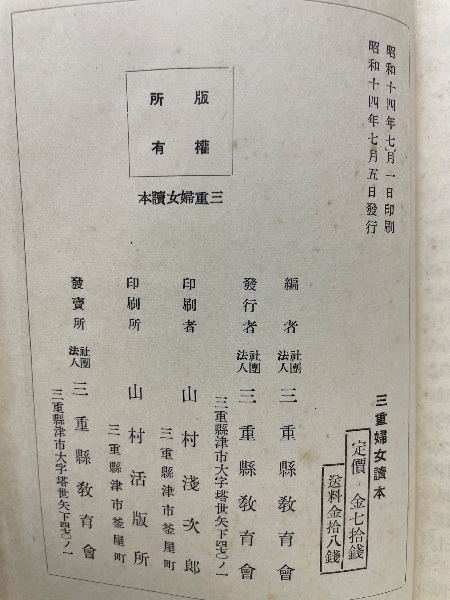 昭和十四年七月一日印刷
昭和十四年七月五日發行
版權
所有
三重婦女讀本
三重婦女讀本
定價 金七拾錢
送料金拾八錢
編者 社團法人 三重縣敎育會
發行者 社團法人 三重縣敎育會
三重縣津市大字塔世矢下四七ノ一
印刷者 山村淺次郎
三重縣津市釜屋町
印刷所 山村活版所
三重縣津市釜屋町
發賣所 社團法人 三重縣敎育會
三重縣津市大字塔世矢下四七ノ一